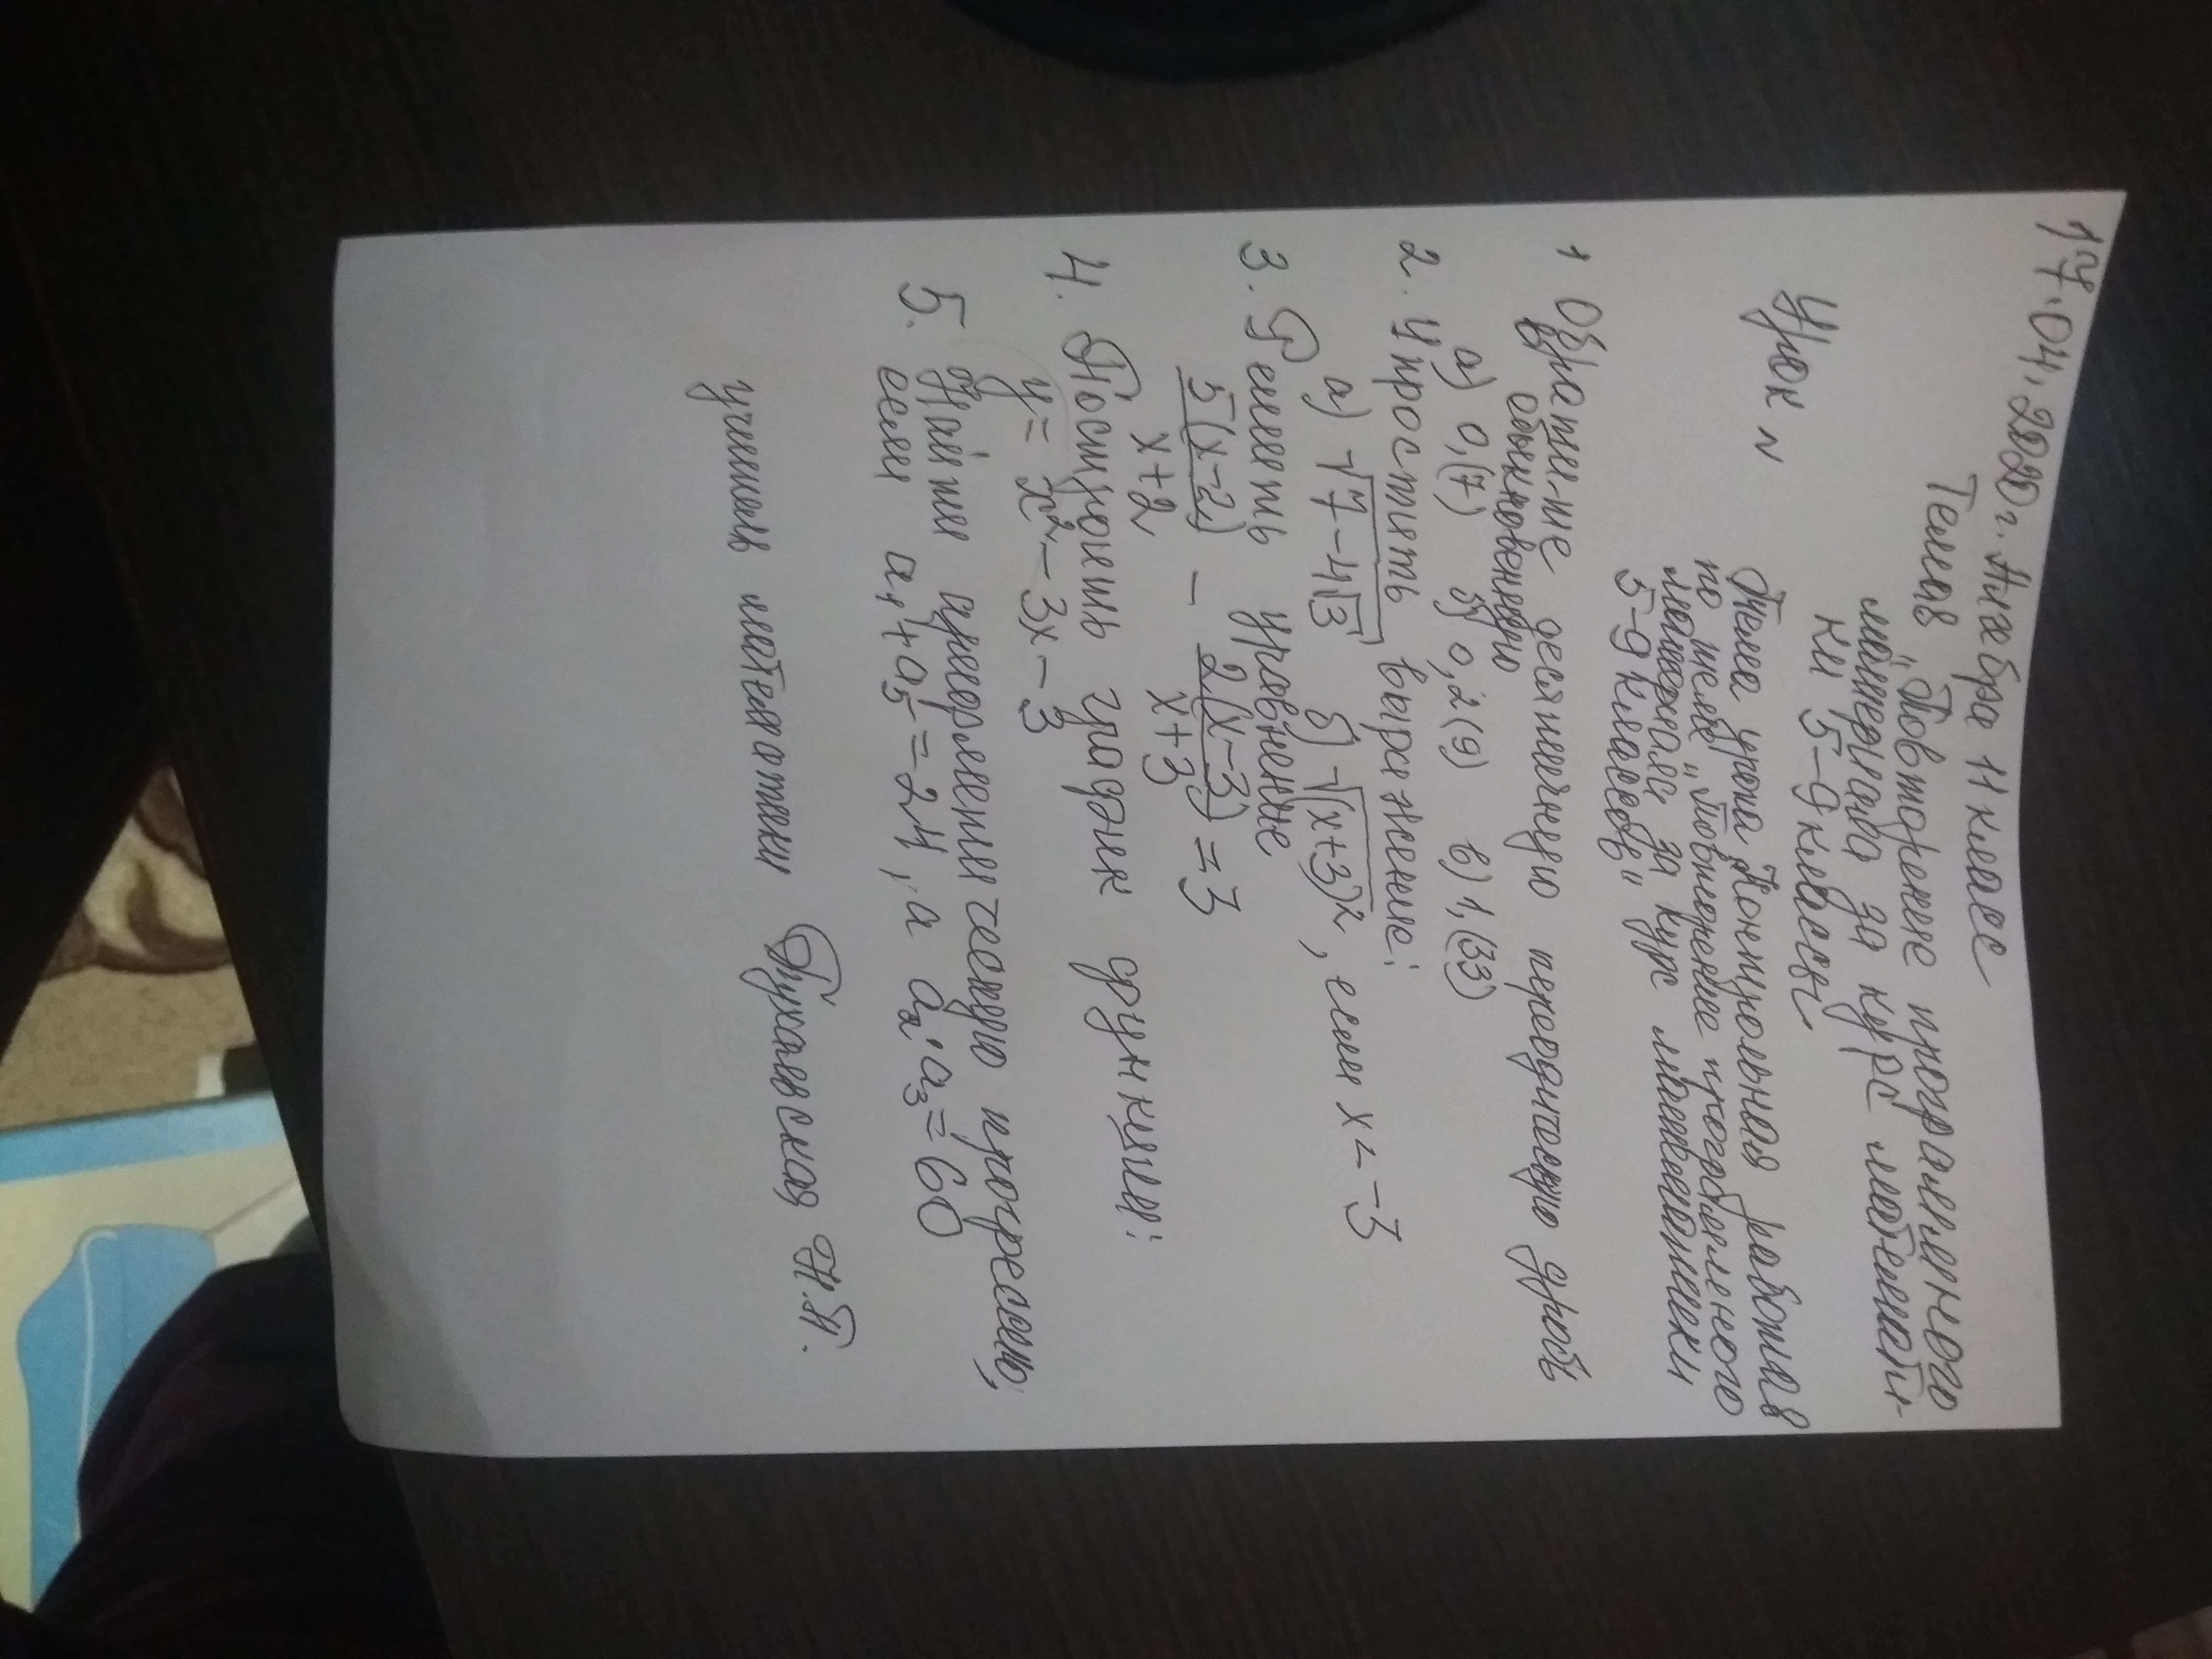 17.04.2020г. Алгебра 11 класс
Тема „Повторение программного
материала за курс математи-
ки 5-9 классы
Урок N
Тема урока „Контрольная работа
по теме „Повторение програбмленого
материала за курс математики
5-9 классов"
1 Обратите десятичную периодическую дробь
в обыкновенную
а) 0,(7) б) 0,2(9) в) 1,(33)
2. Упростить выражение:
а) √7-4√3 б) √(x+3)², если x<-3
3. Решить уравнение
5(x-2)/x+2 - 2(x-3)/x+3 = 3
4. Построить график функции:
y = x² - 3x - 3
5. Найти арифметическую прогрессию,
если a₁+a₅=24, а a₂·a₃=60
учитель математики Бухаевская Н.Я.